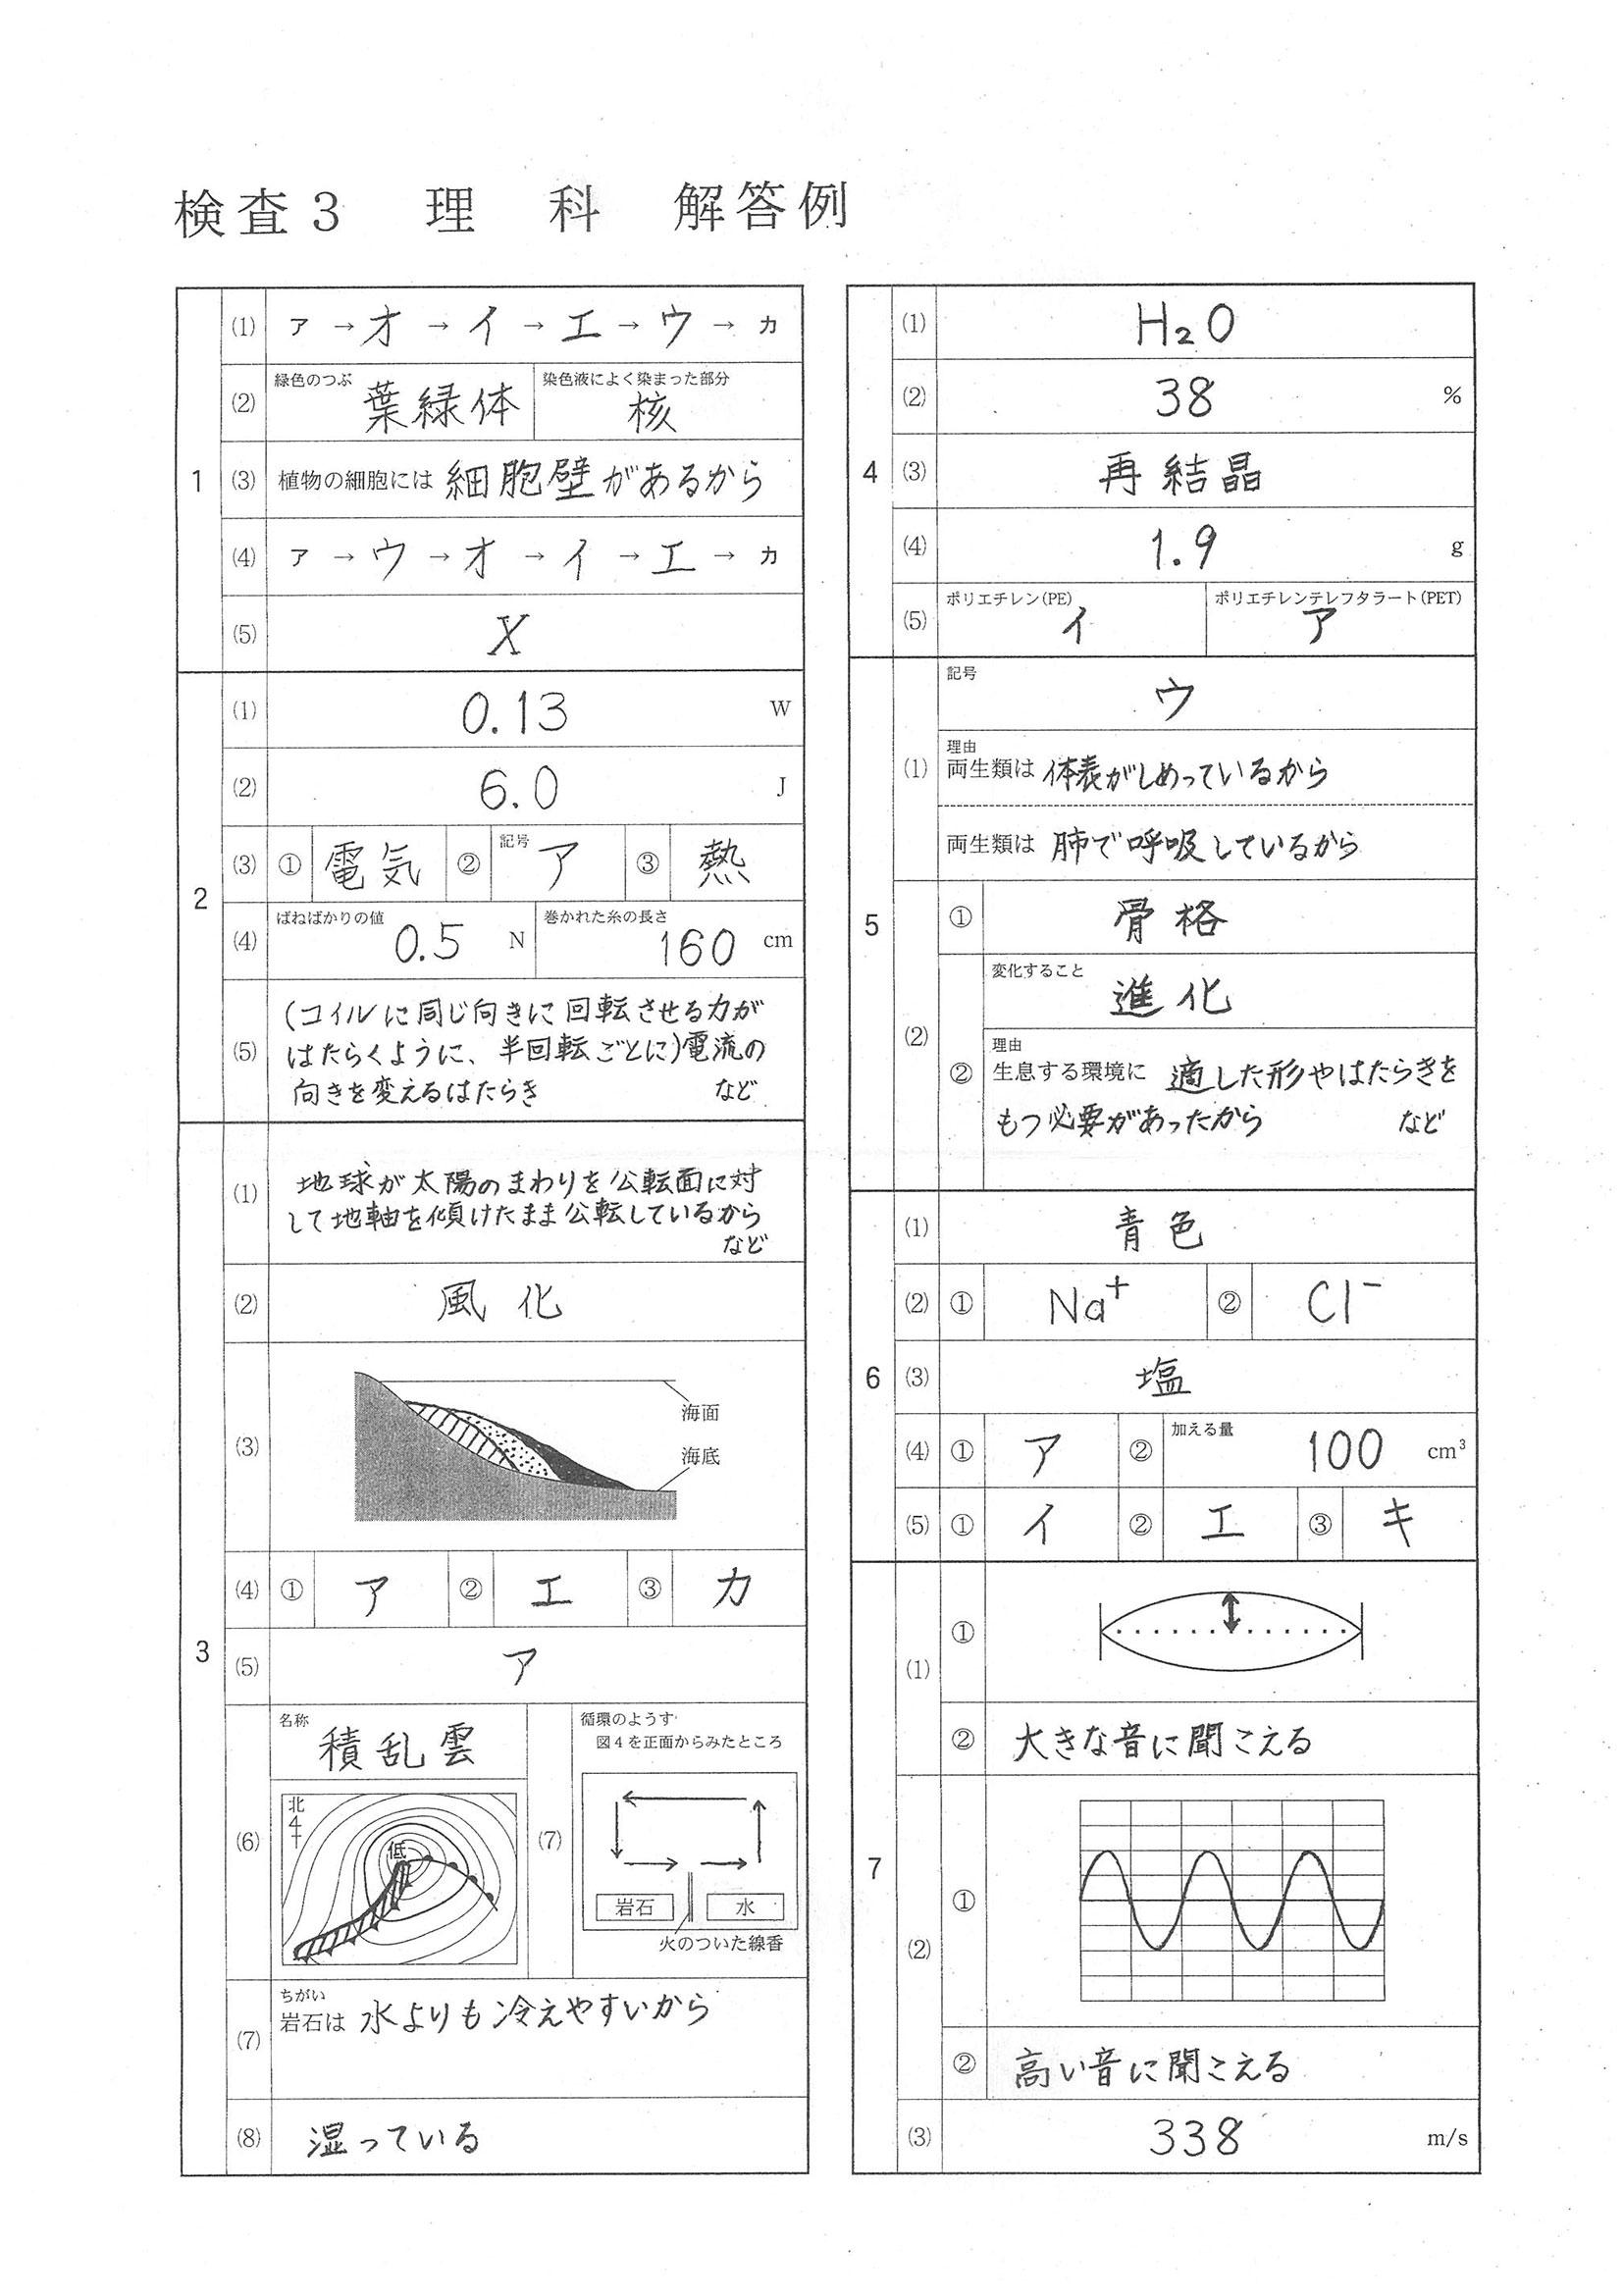 検査3 理科 解答例
1
(1) ア → オ → イ → エ → ウ → カ
(2) 緑色のつぶ 葉緑体 染色液によく染まった部分 核
(3) 植物の細胞には 細胞壁があるから
(4) ア → ウ → オ → イ → エ → カ
(5) X
2
(1) 0.13 W
(2) 6.0 J
(3) ① 電気 ② 記号 ア ③ 熱
(4) ばねばかりの値 0.5 N 巻かれた糸の長さ 160 cm
(5) (コイルに同じ向きに回転させる力が
はたらくように、半回転ごとに)電流の
向きを変えるはたらき など
3
(1) 地球が太陽のまわりを公転面に対
して地軸を傾けたまま公転しているから
など
(2) 風化
(3)
海面
海底
(4) ① ア ② エ ③ カ
(5) ア
(6) 名称 積乱雲
北
低
(7) 循環のようす
図4を正面からみたところ
岩石 水
火のついた線香
(7) ちがい
岩石は 水よりも冷えやすいから
(8) 湿っている
4
(1) H₂O
(2) 38 %
(3) 再結晶
(4) 1.9 g
(5) ポリエチレン(PE) イ ポリエチレンテレフタラート(PET) ア
5
(1) 記号 ウ
理由
両生類は 体表がしめっているから
両生類は 肺で呼吸しているから
(2) ① 骨格
② 変化すること 進化
理由
生息する環境に 適した形やはたらきを
もつ必要があったから など
6
(1) 青色
(2) ① Na⁺ ② Cl⁻
(3) 塩
(4) ① ア ② 加える量 100 cm³
(5) ① イ ② エ ③ キ
7
(1) ①
② 大きな音に聞こえる
(2) ①
② 高い音に聞こえる
(3) 338 m/s